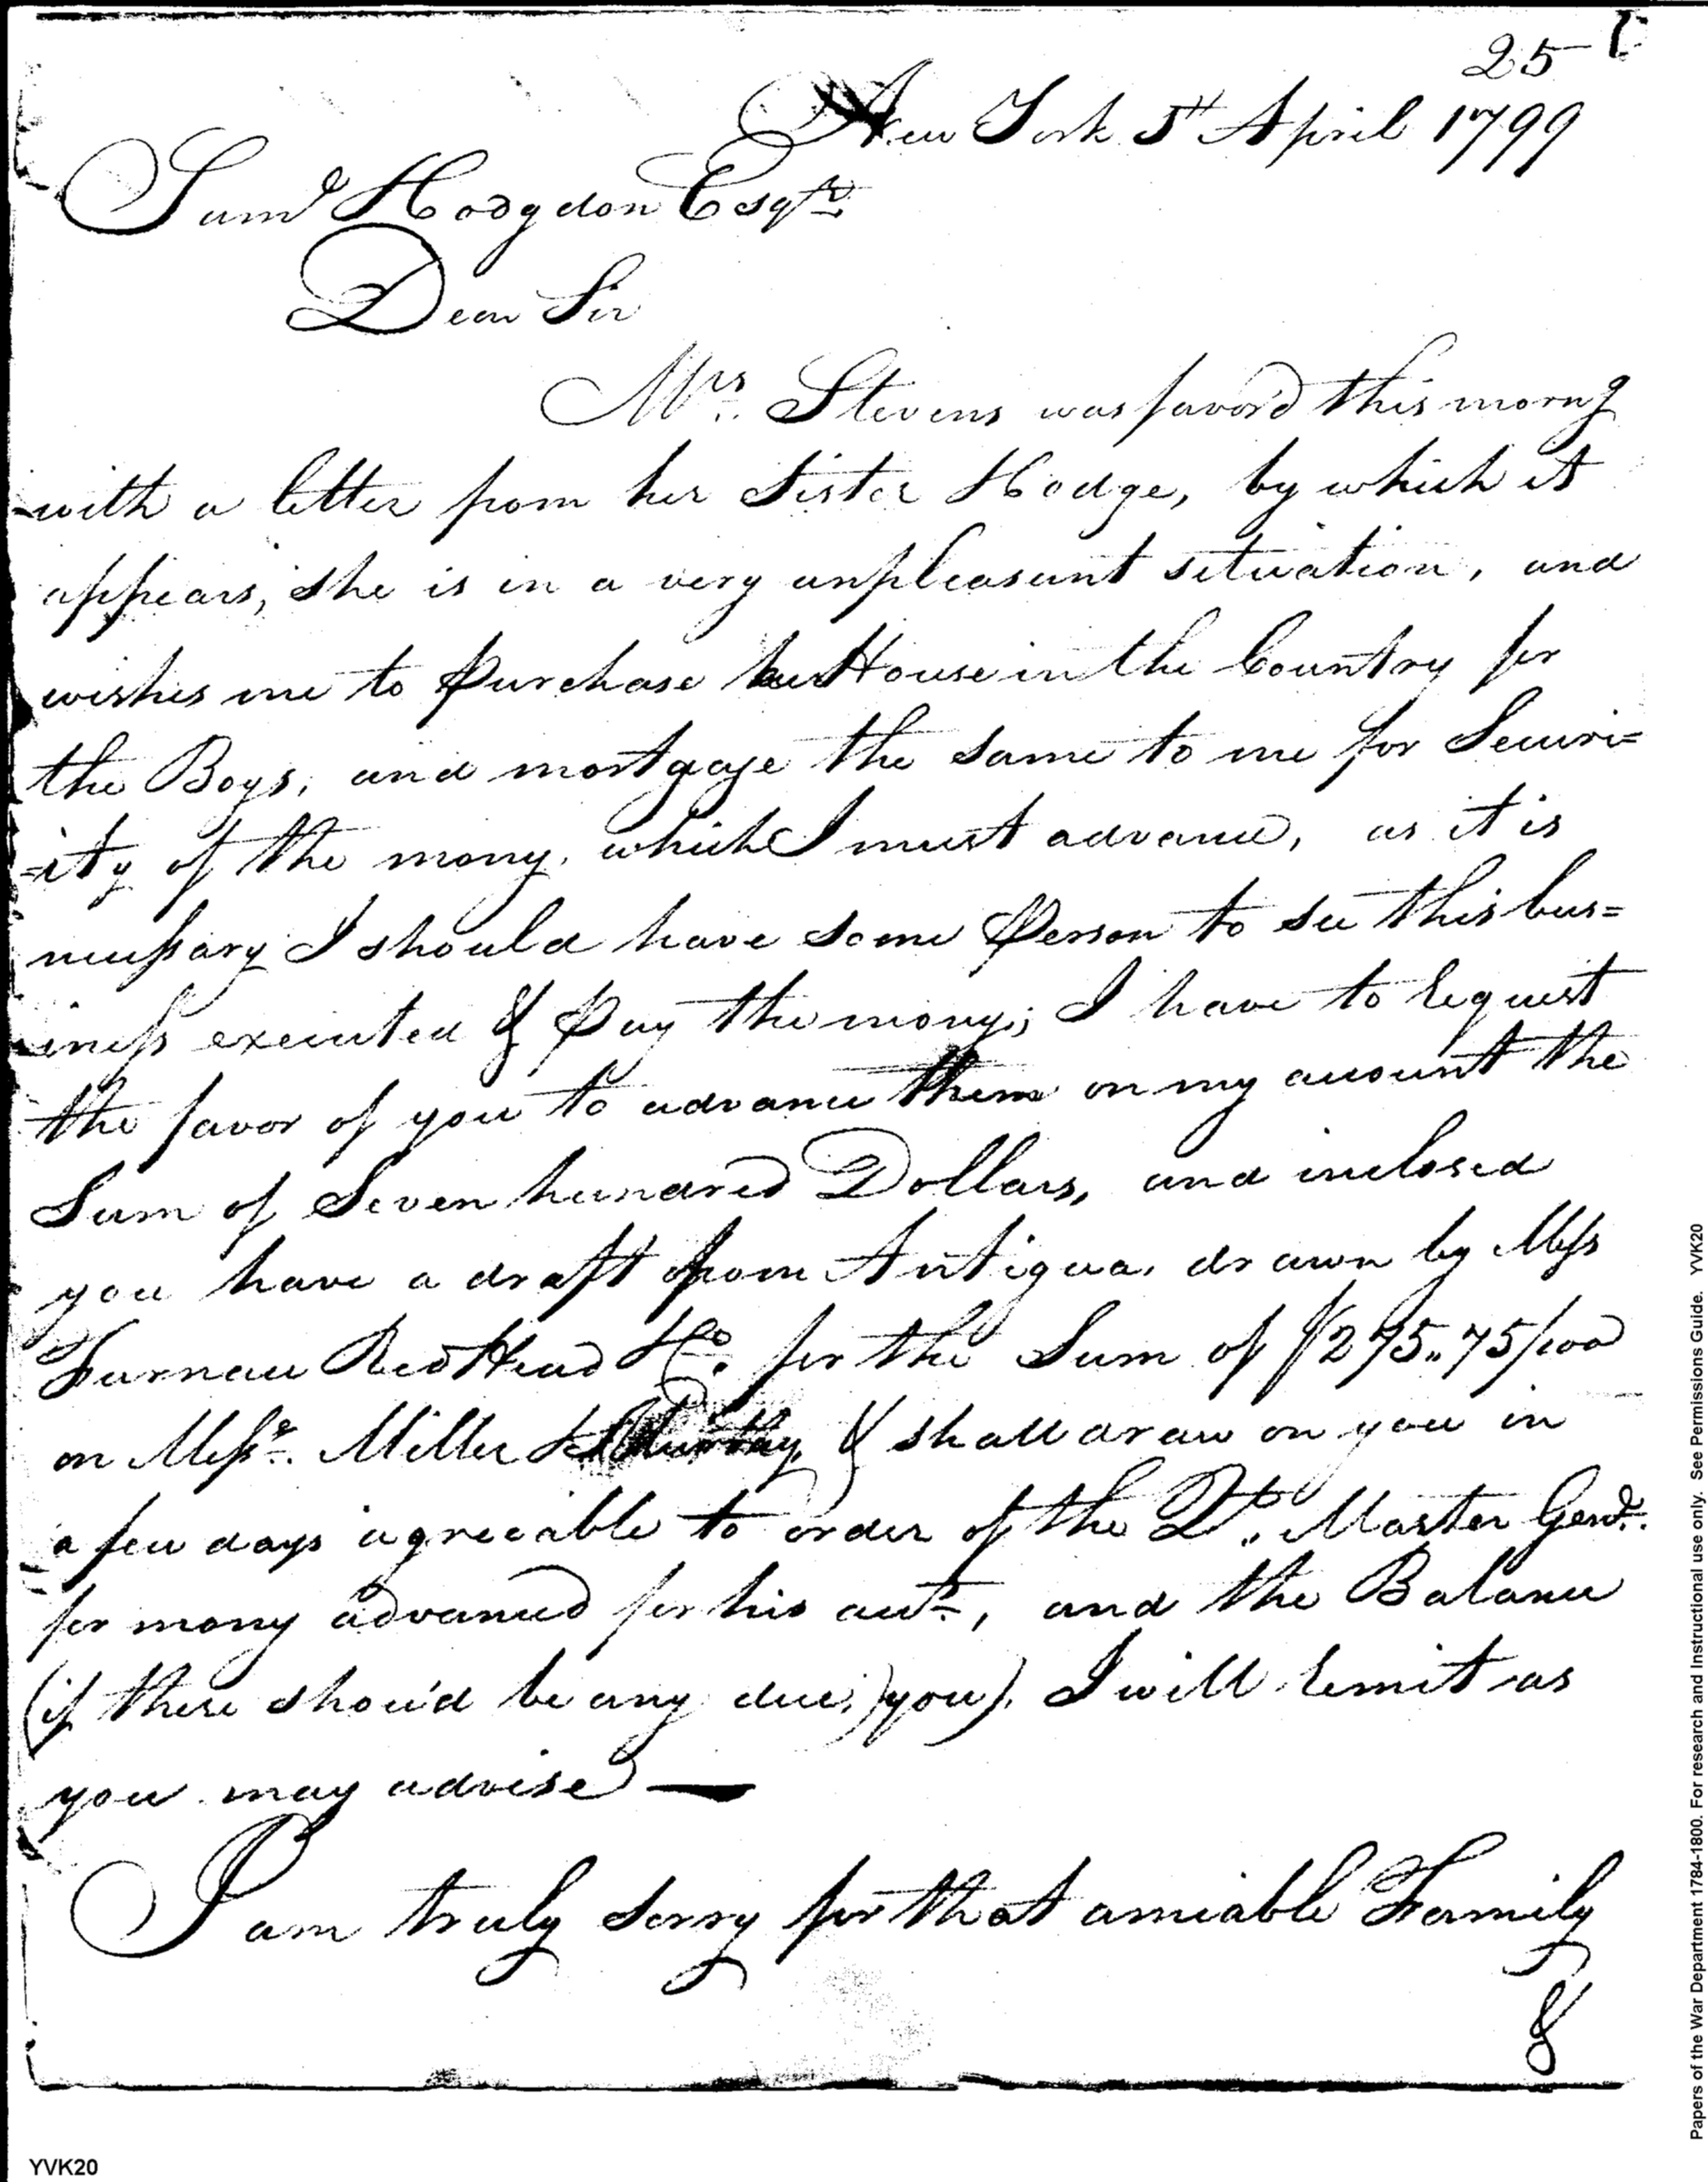 25
New York 5th April 1799
Saml Hodgdon Esqr
Dear Sir
Mrs. Stevens was favord this morng
with a letter from her Sister Hodge, by which it
appears, she is in a very unpleasant situation, and
wishes me to Purchase her House in the Country for
the Boys, and mortgage the same to me for Securi=
-ity of the mony, which I must advance, as it is
necessary I should have some Person to see this bus=
-iness executed & Pay the mony; I have to request
the favor of you to advance them on my account the
Sum of Seven hundred Dollars, and inclosed
you have a draft from Antigua, drawn by Mess
Furnace RedHead & Co. for the Sum of $275..75/100
on Messrs. Miller & Murray, & shall draw on you in
a few days agreeable to order of the Qr. Master Genl.
for mony advanced for his acct, and the Balance
(if there shou'd be any due,) you), I will remit as
you may advise —
I am truly sorry for that amiable Family
&
YVK20
Papers of the War Department 1784-1800. For research and Instructional use only. See Permissions Guide. YVK20